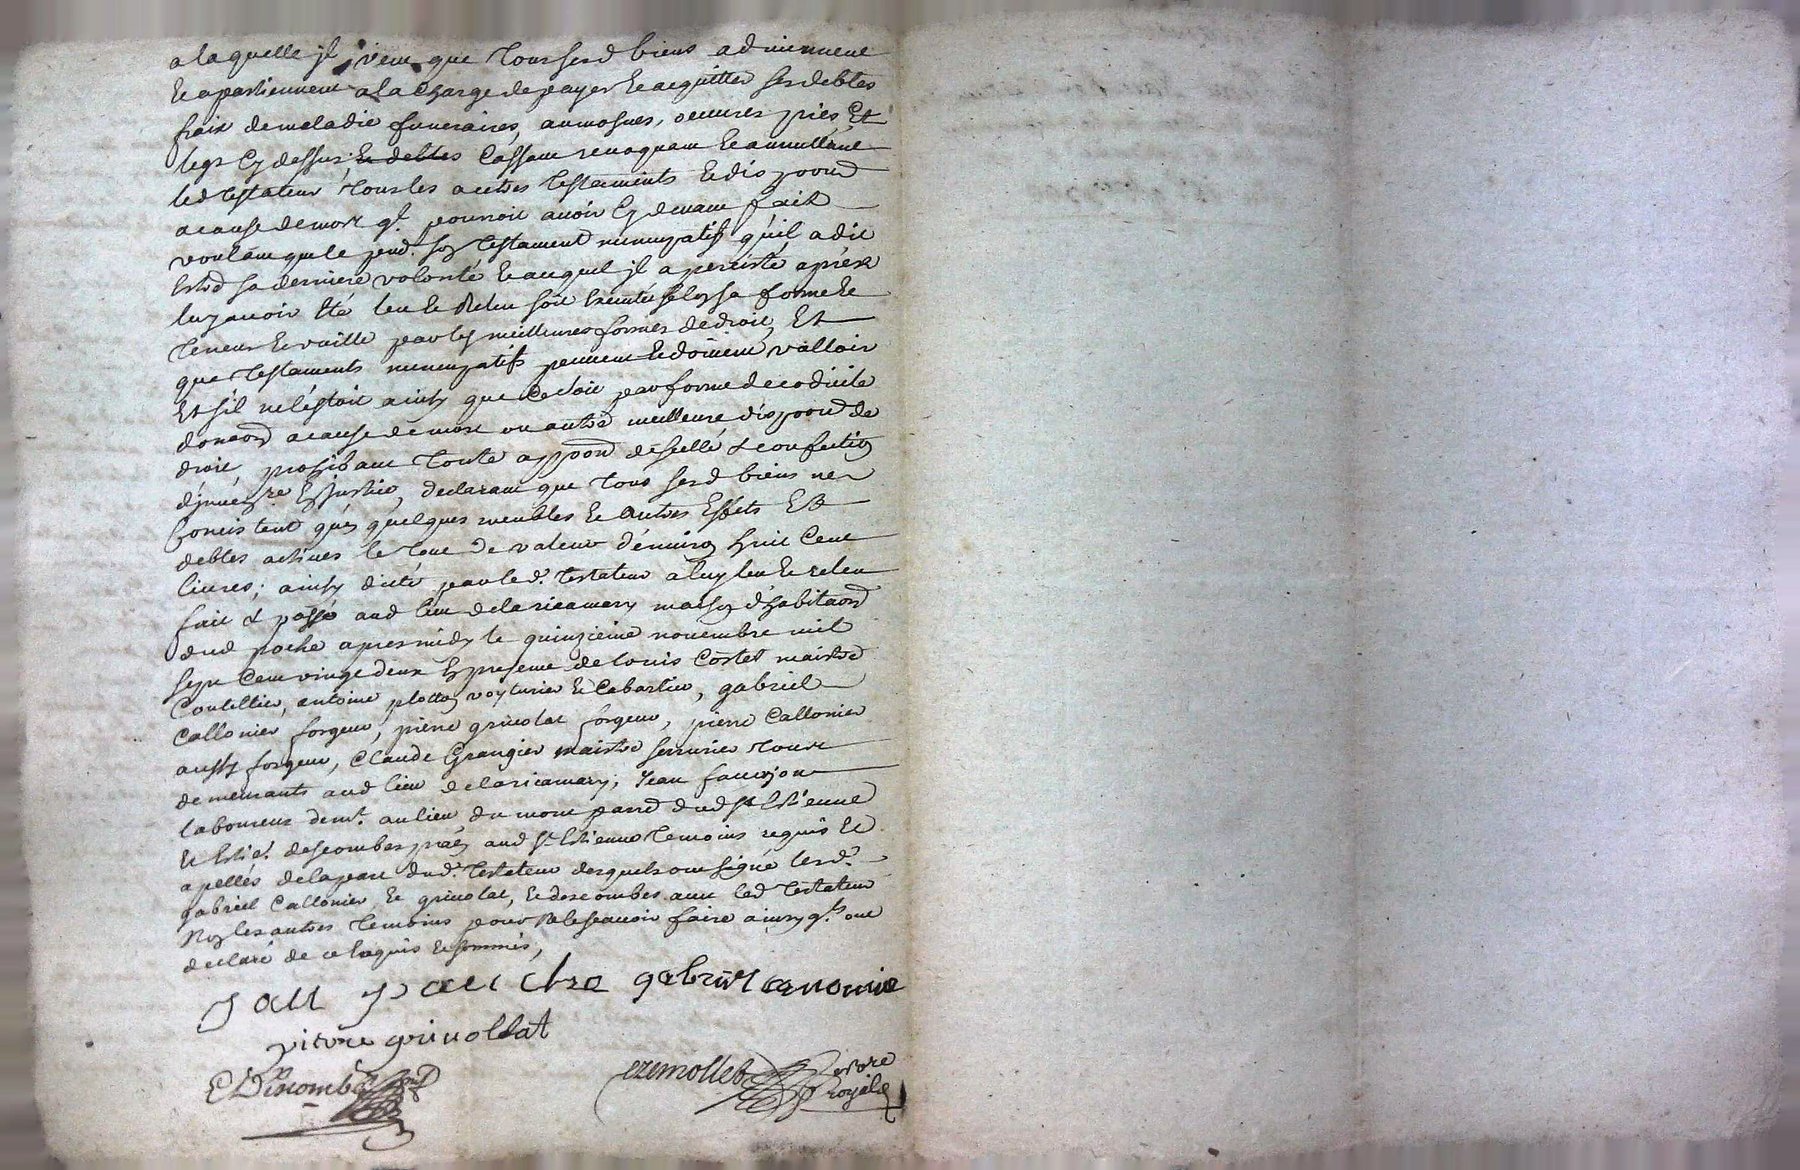 a laquelle jl veut que tous sesd biens adviennent
Et apartiennent a la Charge de payer Et acquitter ses debtes
fraix de maladie funeraires, aumosnes, oeuvres pies, Et
legs Cy dessus Et debtes Cassant revoquant Et annullant
led testateur tous les autres testaments Et dispoond
a cause de mort ql pourroit avoir Cy devant fait
voulant que le pnt. soy testament nuncupatif qu'il a dit
Estre sa derniere volonté Et auquel jl a percisté apres
luy avoir Eté leu Et Releu soit Executé selon sa forme Et
teneur Et vaille par les meilleures formes de droit, Et
que testaments nuncupatifs peuvent Et doivent valloir
Et s'il ne l'estoit ainsy que Ce soit par forme de codicile
donaond a cause de mort ou autre meilleure dispoond de
droit, prohibant toute appoond de scellé & confection
d'jnvre En justice, declarant que tous sesd biens ne
Concistent qu'en quelques meubles Et autres Effets Et
debtes actives le tout de valeur d'environ huit Cent
livres; ainsy dicté par led. testateur a luy leu Et releu
fait & passé aud lieu de la ricamary maison d'habitaond
dud poche apres midy le quinzieme novembre mil
sept Cent vingt deux En presence de louis Costet maistre
Coutellier, antoine plotton voyturier Et Cabartier, gabriel
Callonier forgeur, pierre grivolat forgeur, pierre Callonier
aussy forgeur, Claude Grangier maistre serrurier tous
demeurants aud lieu de la ricamary, Jean faurjon
laboureur demt. au lieu du mont parr dud St Estienne
Et Estie. descombes praen aud St Estienne temoins requis Et
apellés de la part dud. testateur desquels ont signé lesd.
gabriel Callonier, Et grivolat, Et descombes avec led testateur
Non les autres temoins pour Ne le scavoir faire ainsy qls ont
declaré de ce Enquis Et sommés,
gabriel canonie
pierre grivollat
E Descombes
ezemollet nore
royal